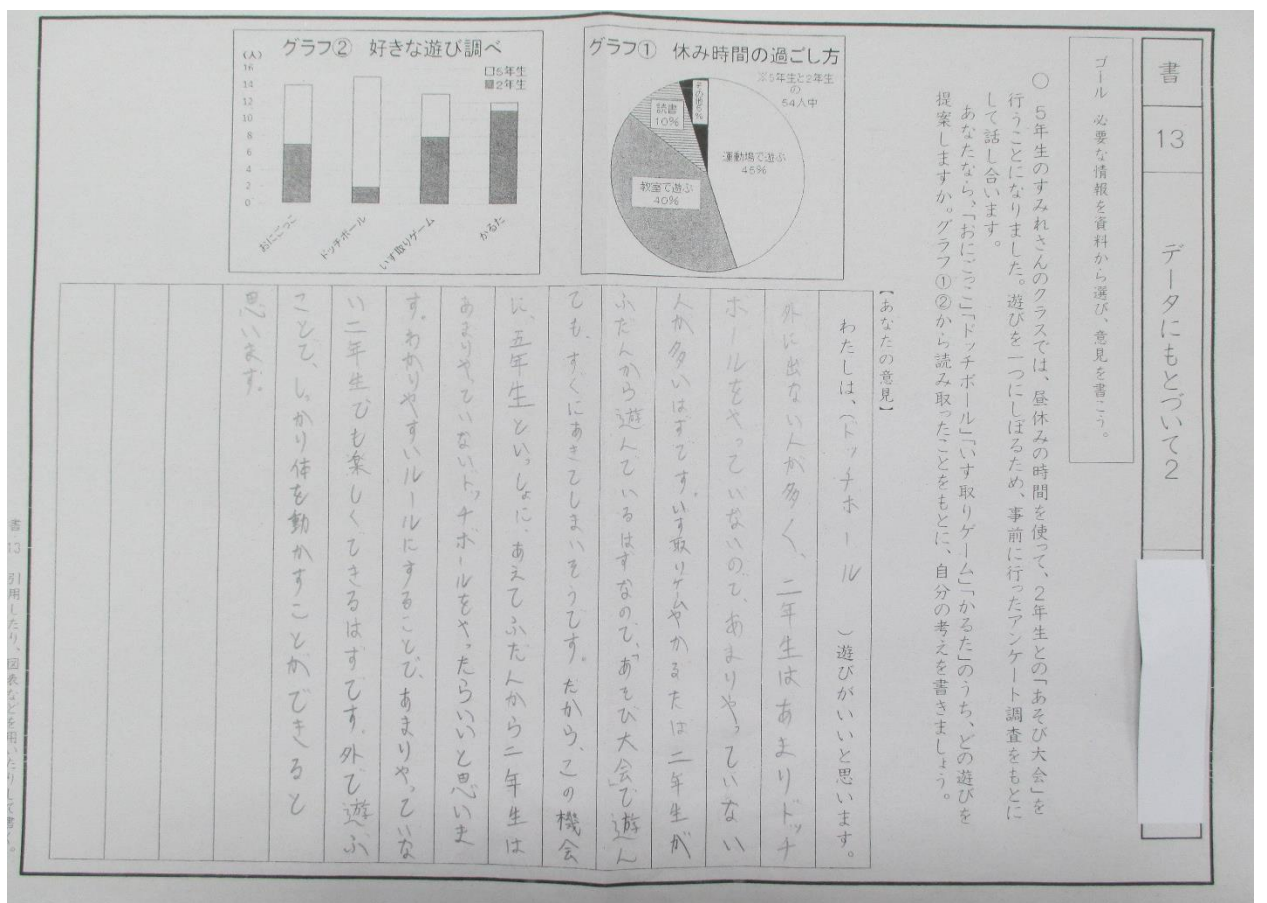 書
13
データにもとづいて2
ゴール 必要な情報を資料から選び、意見を書こう。
○ 5年生のすみれさんのクラスでは、昼休みの時間を使って、2年生との「あそび大会」を
行うことになりました。遊びを一つにしぼるため、事前に行ったアンケート調査をもとに
して話し合います。
あなたなら、「おにごっこ」「ドッチボール」「いす取りゲーム」「かるた」のうち、どの遊びを
提案しますか。グラフ①②から読み取ったことをもとに、自分の考えを書きましょう。
グラフ① 休み時間の過ごし方
※5年生と2年生
の
54人中
運動場で遊ぶ
45%
教室で遊ぶ
40%
読書
10%
その他5%
グラフ② 好きな遊び調べ
(人)
□5年生
■2年生
16
14
12
10
8
6
4
2
0
おにごっこ
ドッチボール
いす取りゲーム
かるた
【あなたの意見】
わたしは、(ドッチホール)遊びがいいと思います。
外に出ない人が多く、二年生はあまりドッチ
ホールをやっていないので、あまりやっていない
人が多いはずです。いす取りゲームやかるたは二年生が
ふだんから遊んでいるはずなので、「あそび大会」で遊ん
でも、すぐにあきてしまいそうです。だから、この機会
に、五年生といっしょに、あえてふだんから二年生は
あまりやっていないドッチボールをやったらいいと思いま
す。わかりやすいルールにすることで、あまりやっていな
い二年生でも楽しくできるはずです。外で遊ぶ
ことで、しっかり体を動かすことができると
思います。
書 13 引用したり、図表などを用いたりして書く。